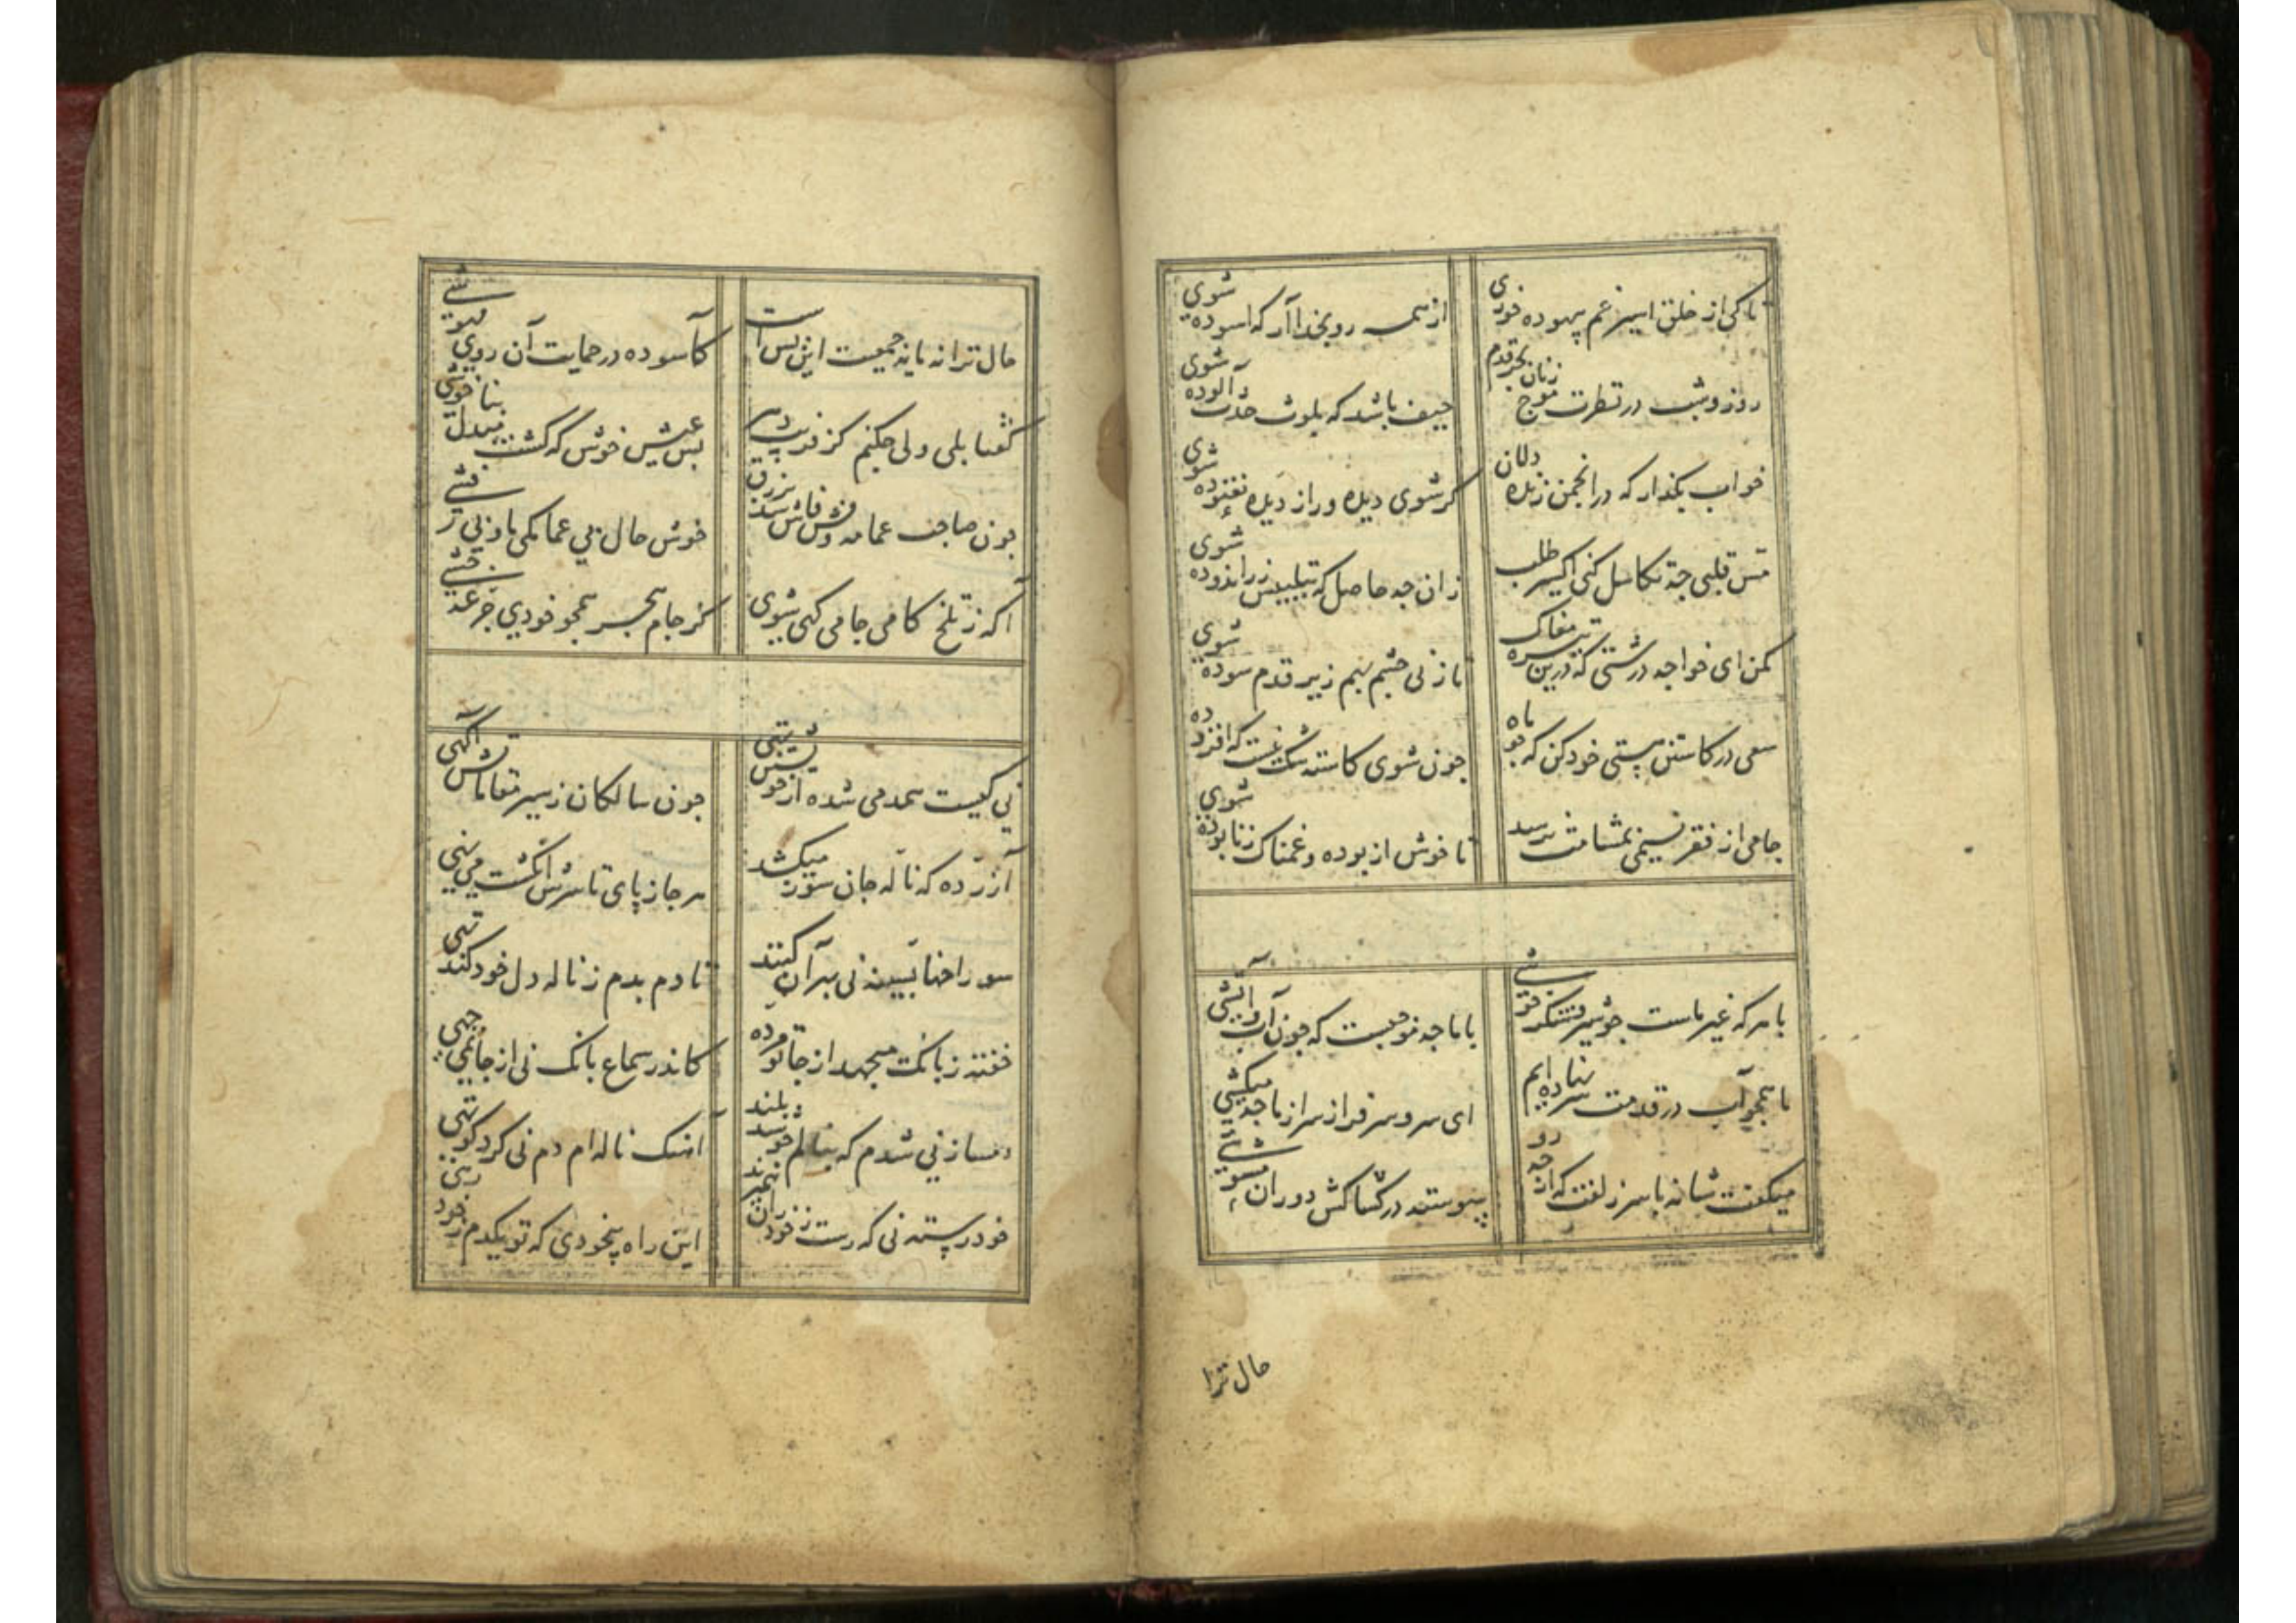 تا کی از خلق اسیر غم بیهوده خوری
از همه روی بخدا آر که آسوده شوی
روز و شب در نظرت موج زنان بحر قدم
حیف باشد که بلوث حدث آلوده شوی
خواب بگذار که در انجمن زنده دلان
گر شوی دیده ور از دیده نغنوده شوی
مس قلبی چه تکاسل کنی اکسیر طلب
زان چه حاصل که بتلبیس زراندوده شوی
مکن ای خواجه درشتی که درین تیره مغاک
تا زنی چشم بهم زیر قدم سوده شوی
سعی در کاستن هستی خود کن که چو ماه
چون شوی کاسته شک نیست که افزوده شوی
جامی از فقر نسیمی بمشامت نرسد
تا خوش از بوده و غمناک ز نابوده شوی
با هر که غیر ماست چو شیر و شکر خوشی
با ما چه موجبست که چون آب و آتشی
ما همچو آب در قدمت سر نهاده ایم
ای سرو سرفراز سر از ما چه میکشی
میگفت شانه با سر زلفت که از چه رو
پیوسته در کشاکش دوران مشوشی
حال ترا
حال ترا نه مایه جمعیت این بس است
کآسوده در حمایت آن روی مهوشی
گفتا بلی ولی چکنم کز فریب دهر
بس عیش خوش که گشت مبدل بناخوشی
چون صاحب عمامه و فش فاش شد بزرق
خوش حال بی عمامگی ما و بی فشی
آگه ز تلخ کامی جامی کی شوی
کز جام هجر همچو خودی جرعه چشی
نی کیست همدمی شده از خویشتن تهی
چون سالکان ز سیر مقاماتش آگهی
آزرده که ناله جان سوز میکشد
هر جا ز پای تا سرش انگشت می نهی
سوراخها بسینه نی بهر آن کنند
تا دم بدم ز ناله دل خود کند تهی
خفته ز بانگ میجهد از جا تو مرده
کاندر سماع بانگ نی از جا نمی جهی
دمساز نی شدم که بنالم چو شد بلند
آهنگ ناله ام دم نی کرد کوتهی
خود رسته نی که رست ز خود زان نمیرند
این راه بیخودی که تو یکدم ز خود رهی